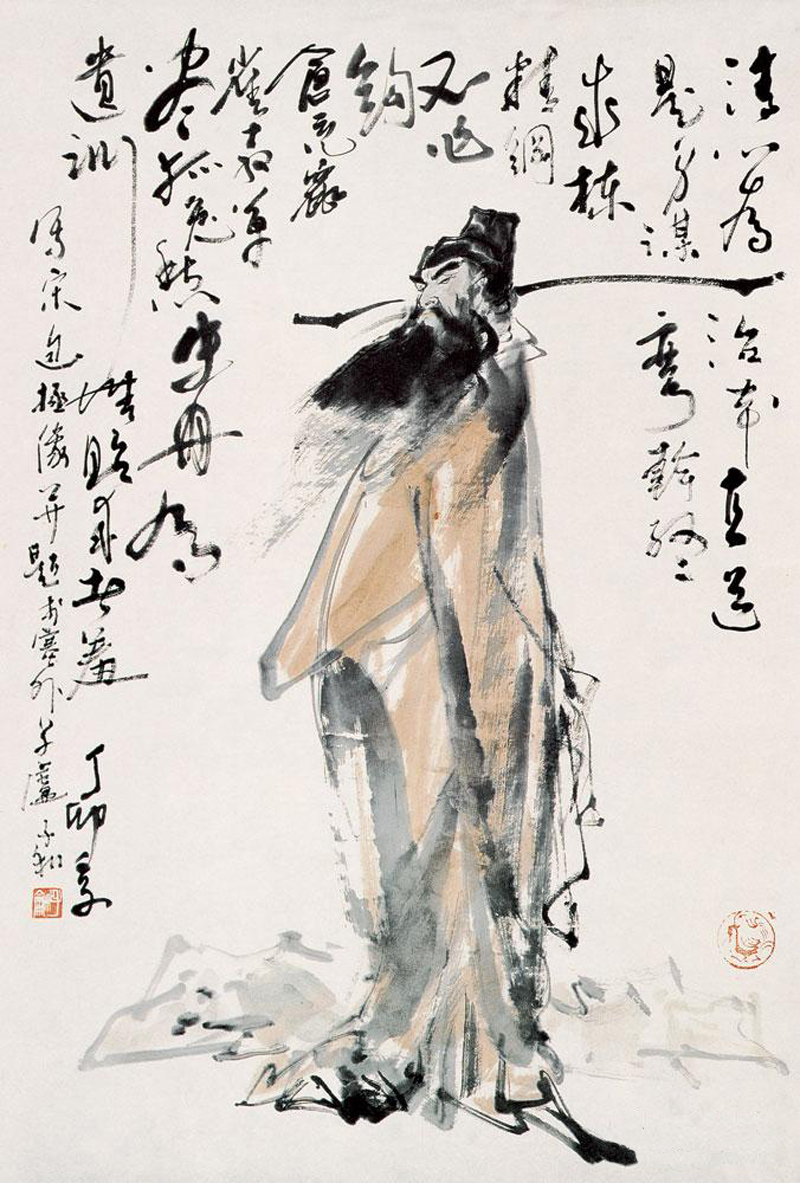 清心為治本直道
是身謀秀幹終
成棟
精鋼
不作
鉤
倉充鼠
雀喜草
尽狐兔愁史冊有
遺訓
貽来者羞
丁卯
写宋包拯像并題於塞外草廬子和